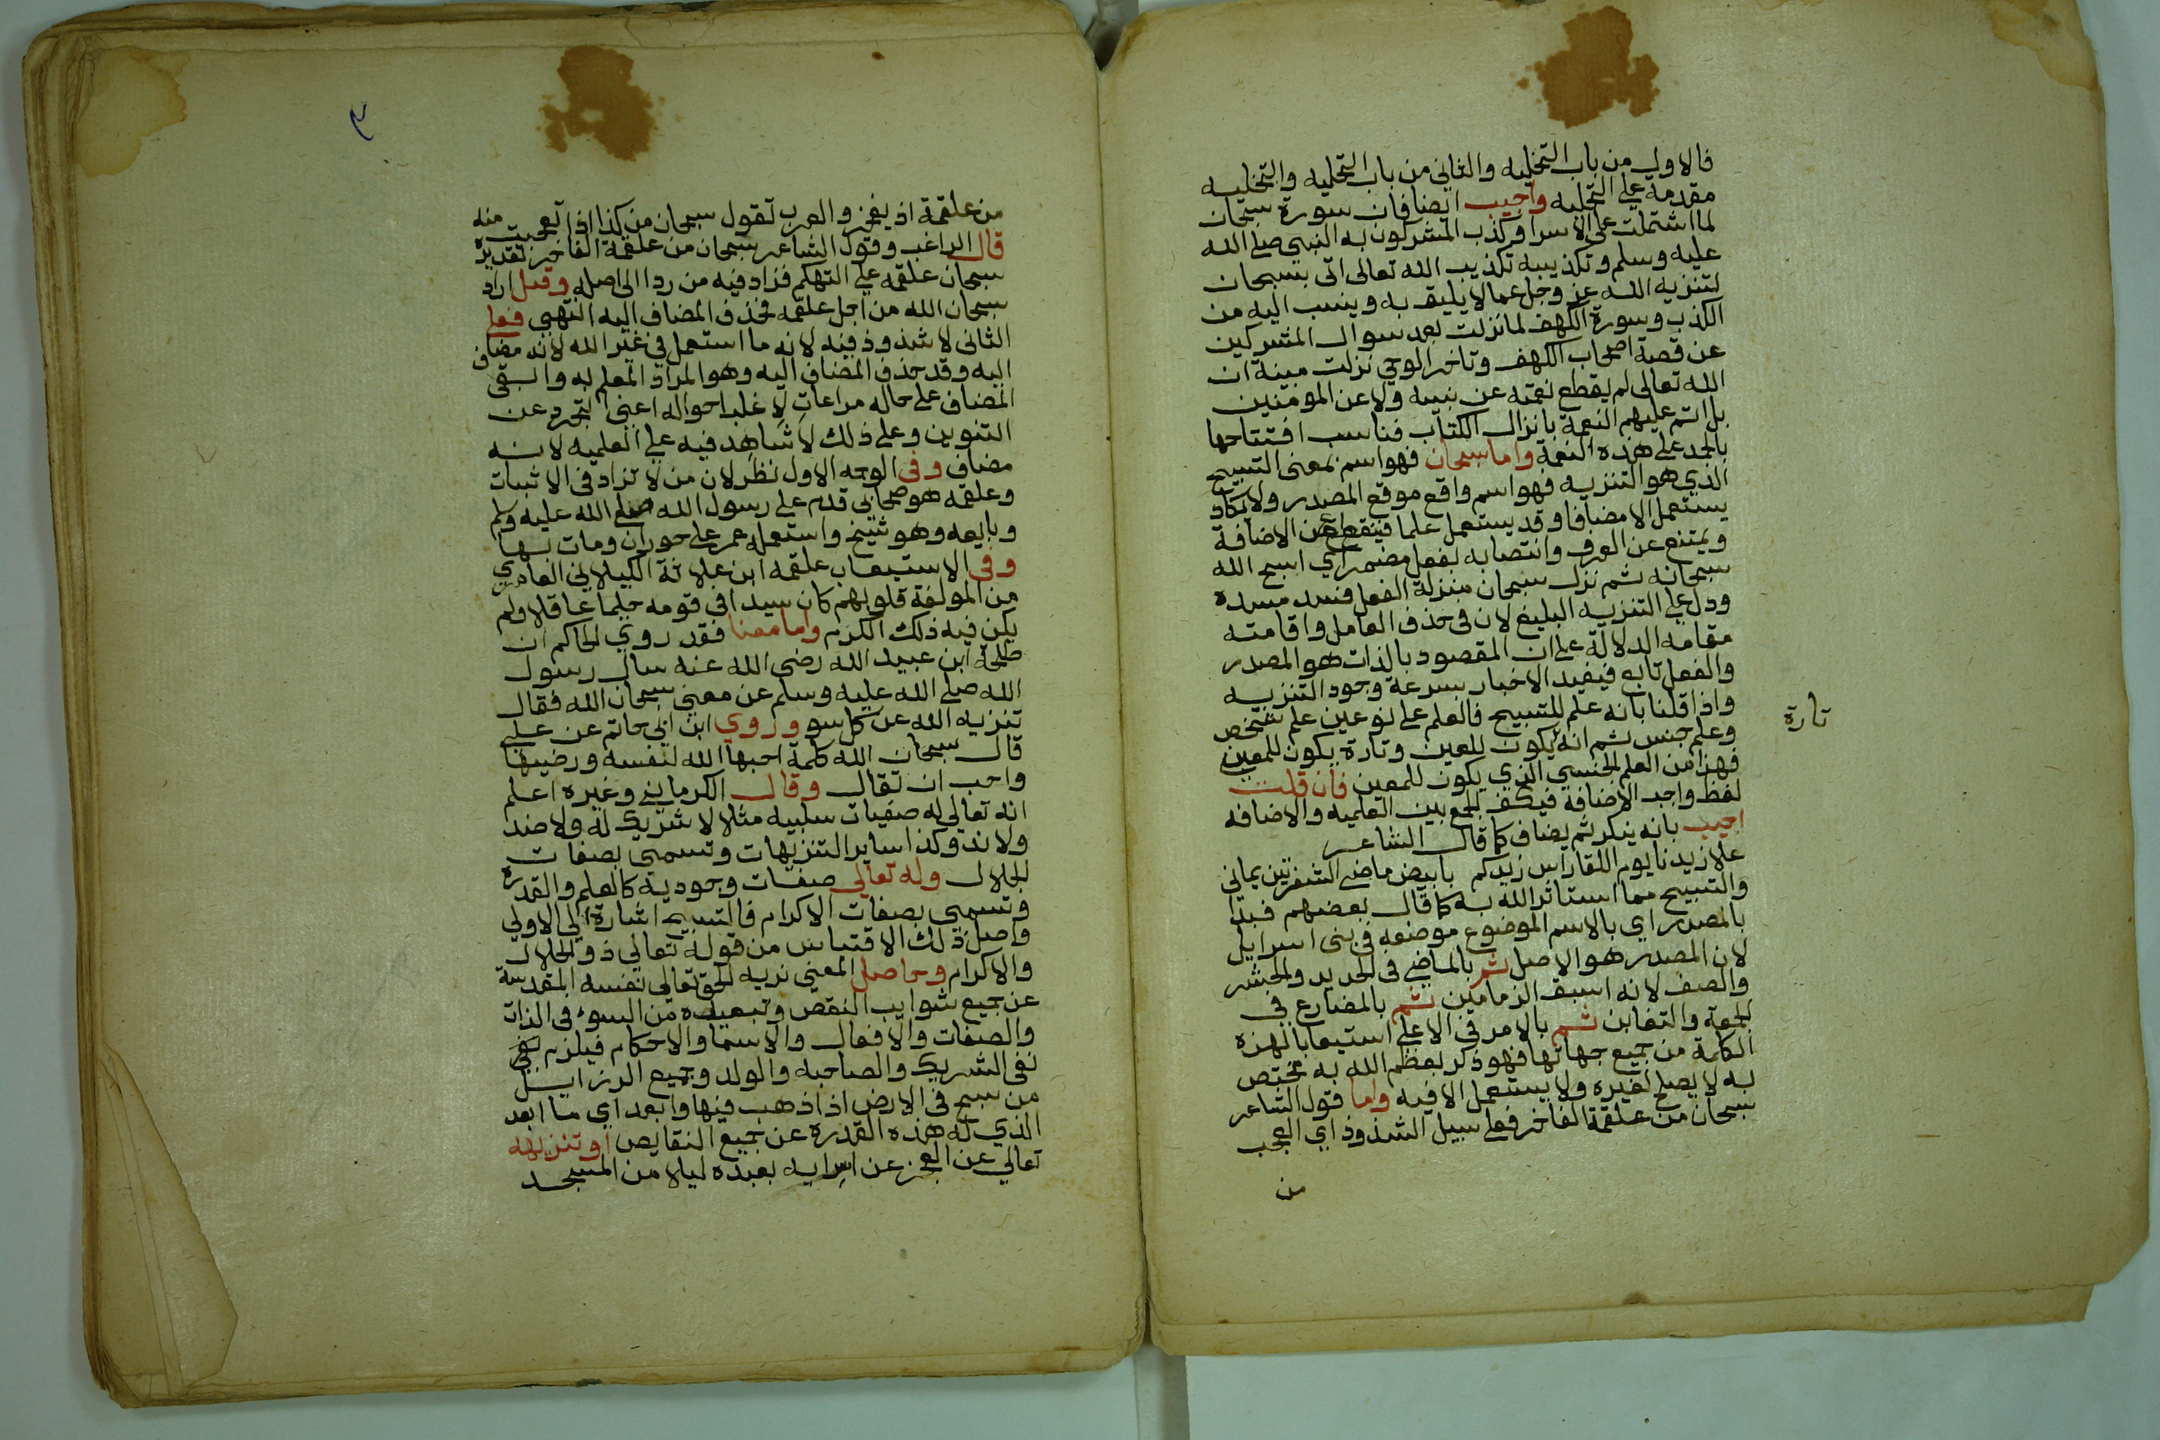 فالاول من باب التخليه والثاني من باب التحليه والتخليه
مقدمة على التحليه واجيب ايضا فان سورة سبحان
لما اشتملت على الاسرا فكذب المشركون به النبي صلى الله
عليه وسلم وتكذيبه تكذيب الله تعالى اتى بسبحان
لتنزيه الله عز وجل عما لا يليق به وينسب اليه من
الكذب وسورة الكهف لما نزلت بعد سوال المشركين
عن قصة اصحاب الكهف وتاخر الوحي نزلت مبينة ان
الله تعالى لم يقطع نعمته عن نبيه ولا عن المومنين
بل اتم عليهم النعمة بانزال الكتاب فناسب افتتاحها
بالحد على هذه النعمة واما سبحان فهو اسم بمعنى التسبيح
الذي هو التنزيه فهو اسم واقع موقع المصدر ولا يكاد
يستعمل الا مضافا وقد يستعمل علما فينقطع عن الاضافة
ويمتنع عن الصرف وانتصابه بفعل مضمر اي اسبح الله
سبحانه ثم نزل سبحان منزلة الفعل فسد مسده
ودل على التنزيه البليغ لان في حذف العامل واقامته
مقامه الدلالة على ان المقصود بالذات هو المصدر
والفعل تابع فيفيد الاخبار بسرعة وجود التنزيه
واذا قلنا بانه علم للتسبيح فالعلم على نوعين علم شخص
وعلم جنس ثم انه يكون للعين وتارة يكون للمعين
تارة
فهذا من العلم الجنسي الذي يكون للمعين فان قلت
لفظ واجد الاضافة فيكف الجمع بين العلميه والاضافه
اجيب بانه ينكر ثم يضاف كما قال الشاعر
علا زيدنا يوم اللقا راس زيدكم بابيض ماضي الشفرتين يماني
والتسبيح مما استاثر الله به كما قال بعضهم فبدا
بالمصدر اي بالاسم الموضوع موضعه في بني اسرايل
لان المصدر هو الاصل ثم بالماضي في الحديد والحشر
والصف لانه اسبق الزمامين ثم بالمضارع في
الجمعة والتغابن ثم بالامر في الاعلى استيعابا لهذه
الكلمة من جميع جهاتها فهو ذكر يعظم الله به مختص
به لا يصلح لغيره ولا يستعمل الا فيه واما قول الشاعر
سبحان من علقمة الفاخر فعلى سبيل الشذوذ اي العجب
من
من علقمة اذ يفخر والعرب تقول سبحان من كذا اذا تعجبت منه
قال الراغب وقول الشاعر سبحان من علقمة الفاخر تقديره
سبحان علقمه على التهكم فزاد فيه من ردا الى اصله وقيل اراد
سبحان الله من اجل علقمه فحذف المضاف اليه انتهى فعلى
الثاني لا شذوذ فيه لانه ما استعمل في غير الله لانه مضاف
اليه وقد حذف المضاف اليه وهو المراد المعلم به وابقى
المضاف على حاله مراعات لاغلب احواله اعنى التجرد عن
التنوين وعلى ذلك لا شاهد فيه على العلميه لانه
مضاف وفي الوجه الاول نظر لان من لا تزاد في الاثبات
وعلقمه هو صحابي قدم على رسول الله صلى الله عليه وسلم
وبايعه وهو شيخ واستعمله عمر على حوران ومات بها
وفي الاستيعاب علقمه ابن علاثة الكيلاني العامري
من المولفة قلوبهم كان سيدا في قومه حليما عاقلا ولم
يكن فيه ذلك الكرم واما معنا فقد روي الحاكم ان
طلحة ابن عبيد الله رضى الله عنه سال رسول
الله صلى الله عليه وسلم عن معنى سبحان الله فقال
تنزيه الله عن كل سو وروي ابن ابي حاتم عن علي
قال سبحان الله كلمة احبها الله لنفسه ورضيها
واحب ان تقال وقال الكرماني وغيره اعلم
انه تعالى له صفيات سلبيه مثلا لا شريك له ولا ضد
ولا ند وكذا ساير التنزيهات وتسمى بصفات
الجلال وله تعالى صفات وجوديه كالعلم والقدرة
وتسمى بصفات الاكرام فالتسبيح اشارة الى الاولى
واصل ذلك الاقتباس من قوله تعالى ذو الجلال
والاكرام وحاصل المعنى نزيه الحق تعالى نفسه المقدسة
عن جميع شوايب النقص وتبعيده من السوء في الذات
والصفات والافعال والاسما والاحكام فيلزم نفي
نفي الشريك والصاحبه والولد وجميع الرزايل
من سبح في الارض اذا ذهب فيها وابعد اي ما ابعد
الذي له هذه القدرة عن جميع النقايص اوتنزيهه
تعالى عن العجز عن اسرايه بعبده ليلا من المسجد